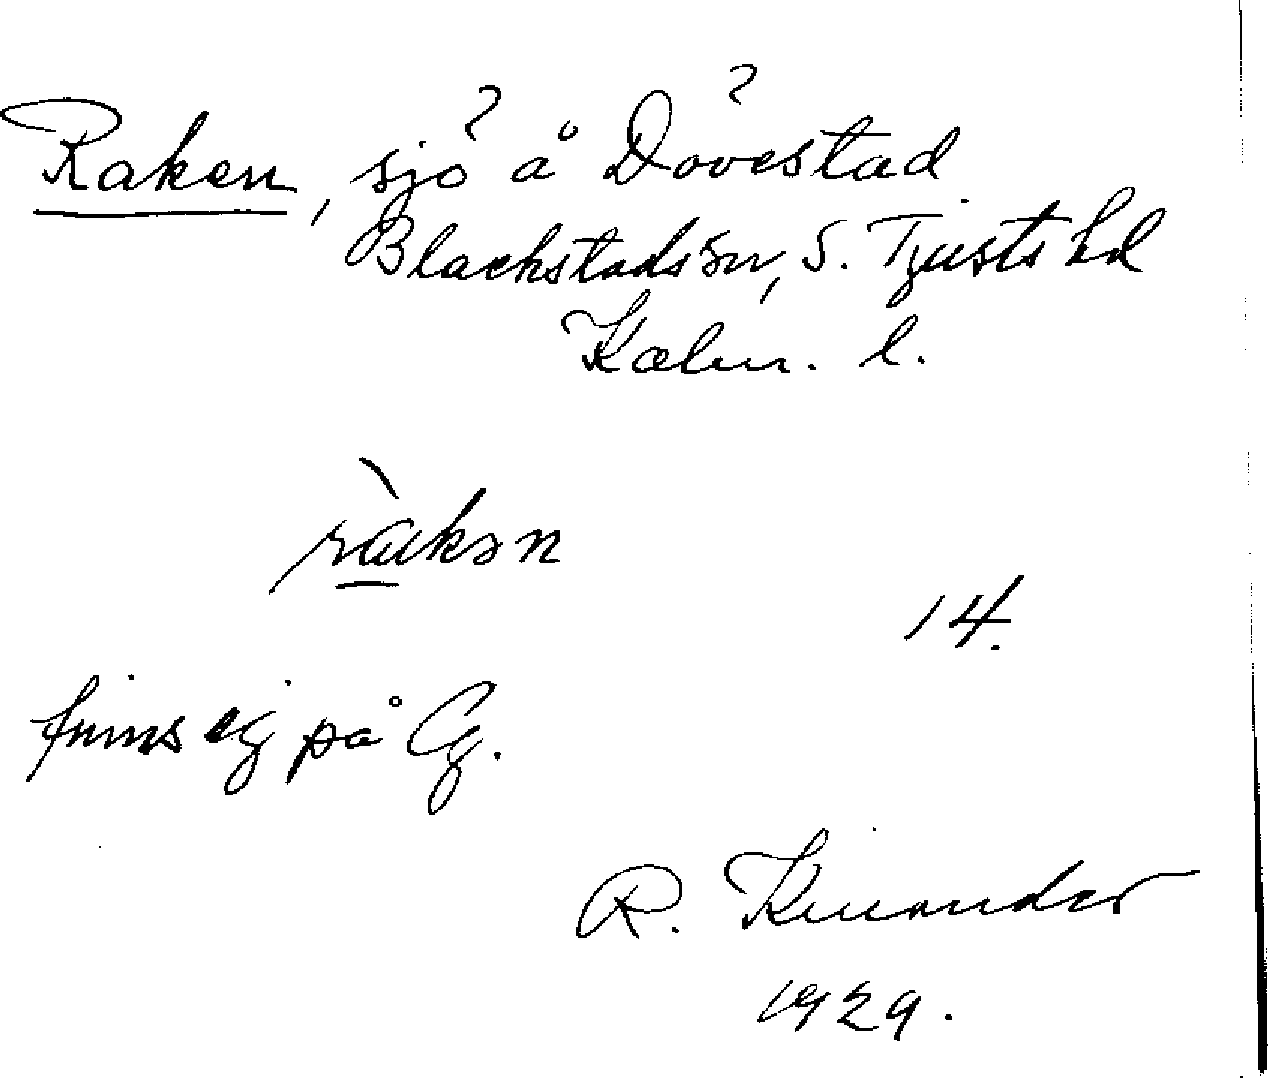 Raken, sjö å Dövestad
Blackstads sn, S. Tjusts hd
Kalm. l.
ràkən
14.
finns ej på Cg.
R. Kinander
1929.